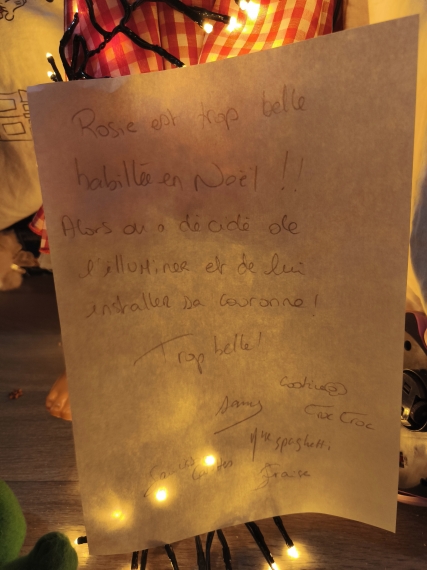 Rosie est trop belle
habillée en Noël !!
Alors on a décidé de
l'illuminer et de lui
installer sa couronne !
Trop belle !
Croc Croc
Mme spaghetti
Fraise